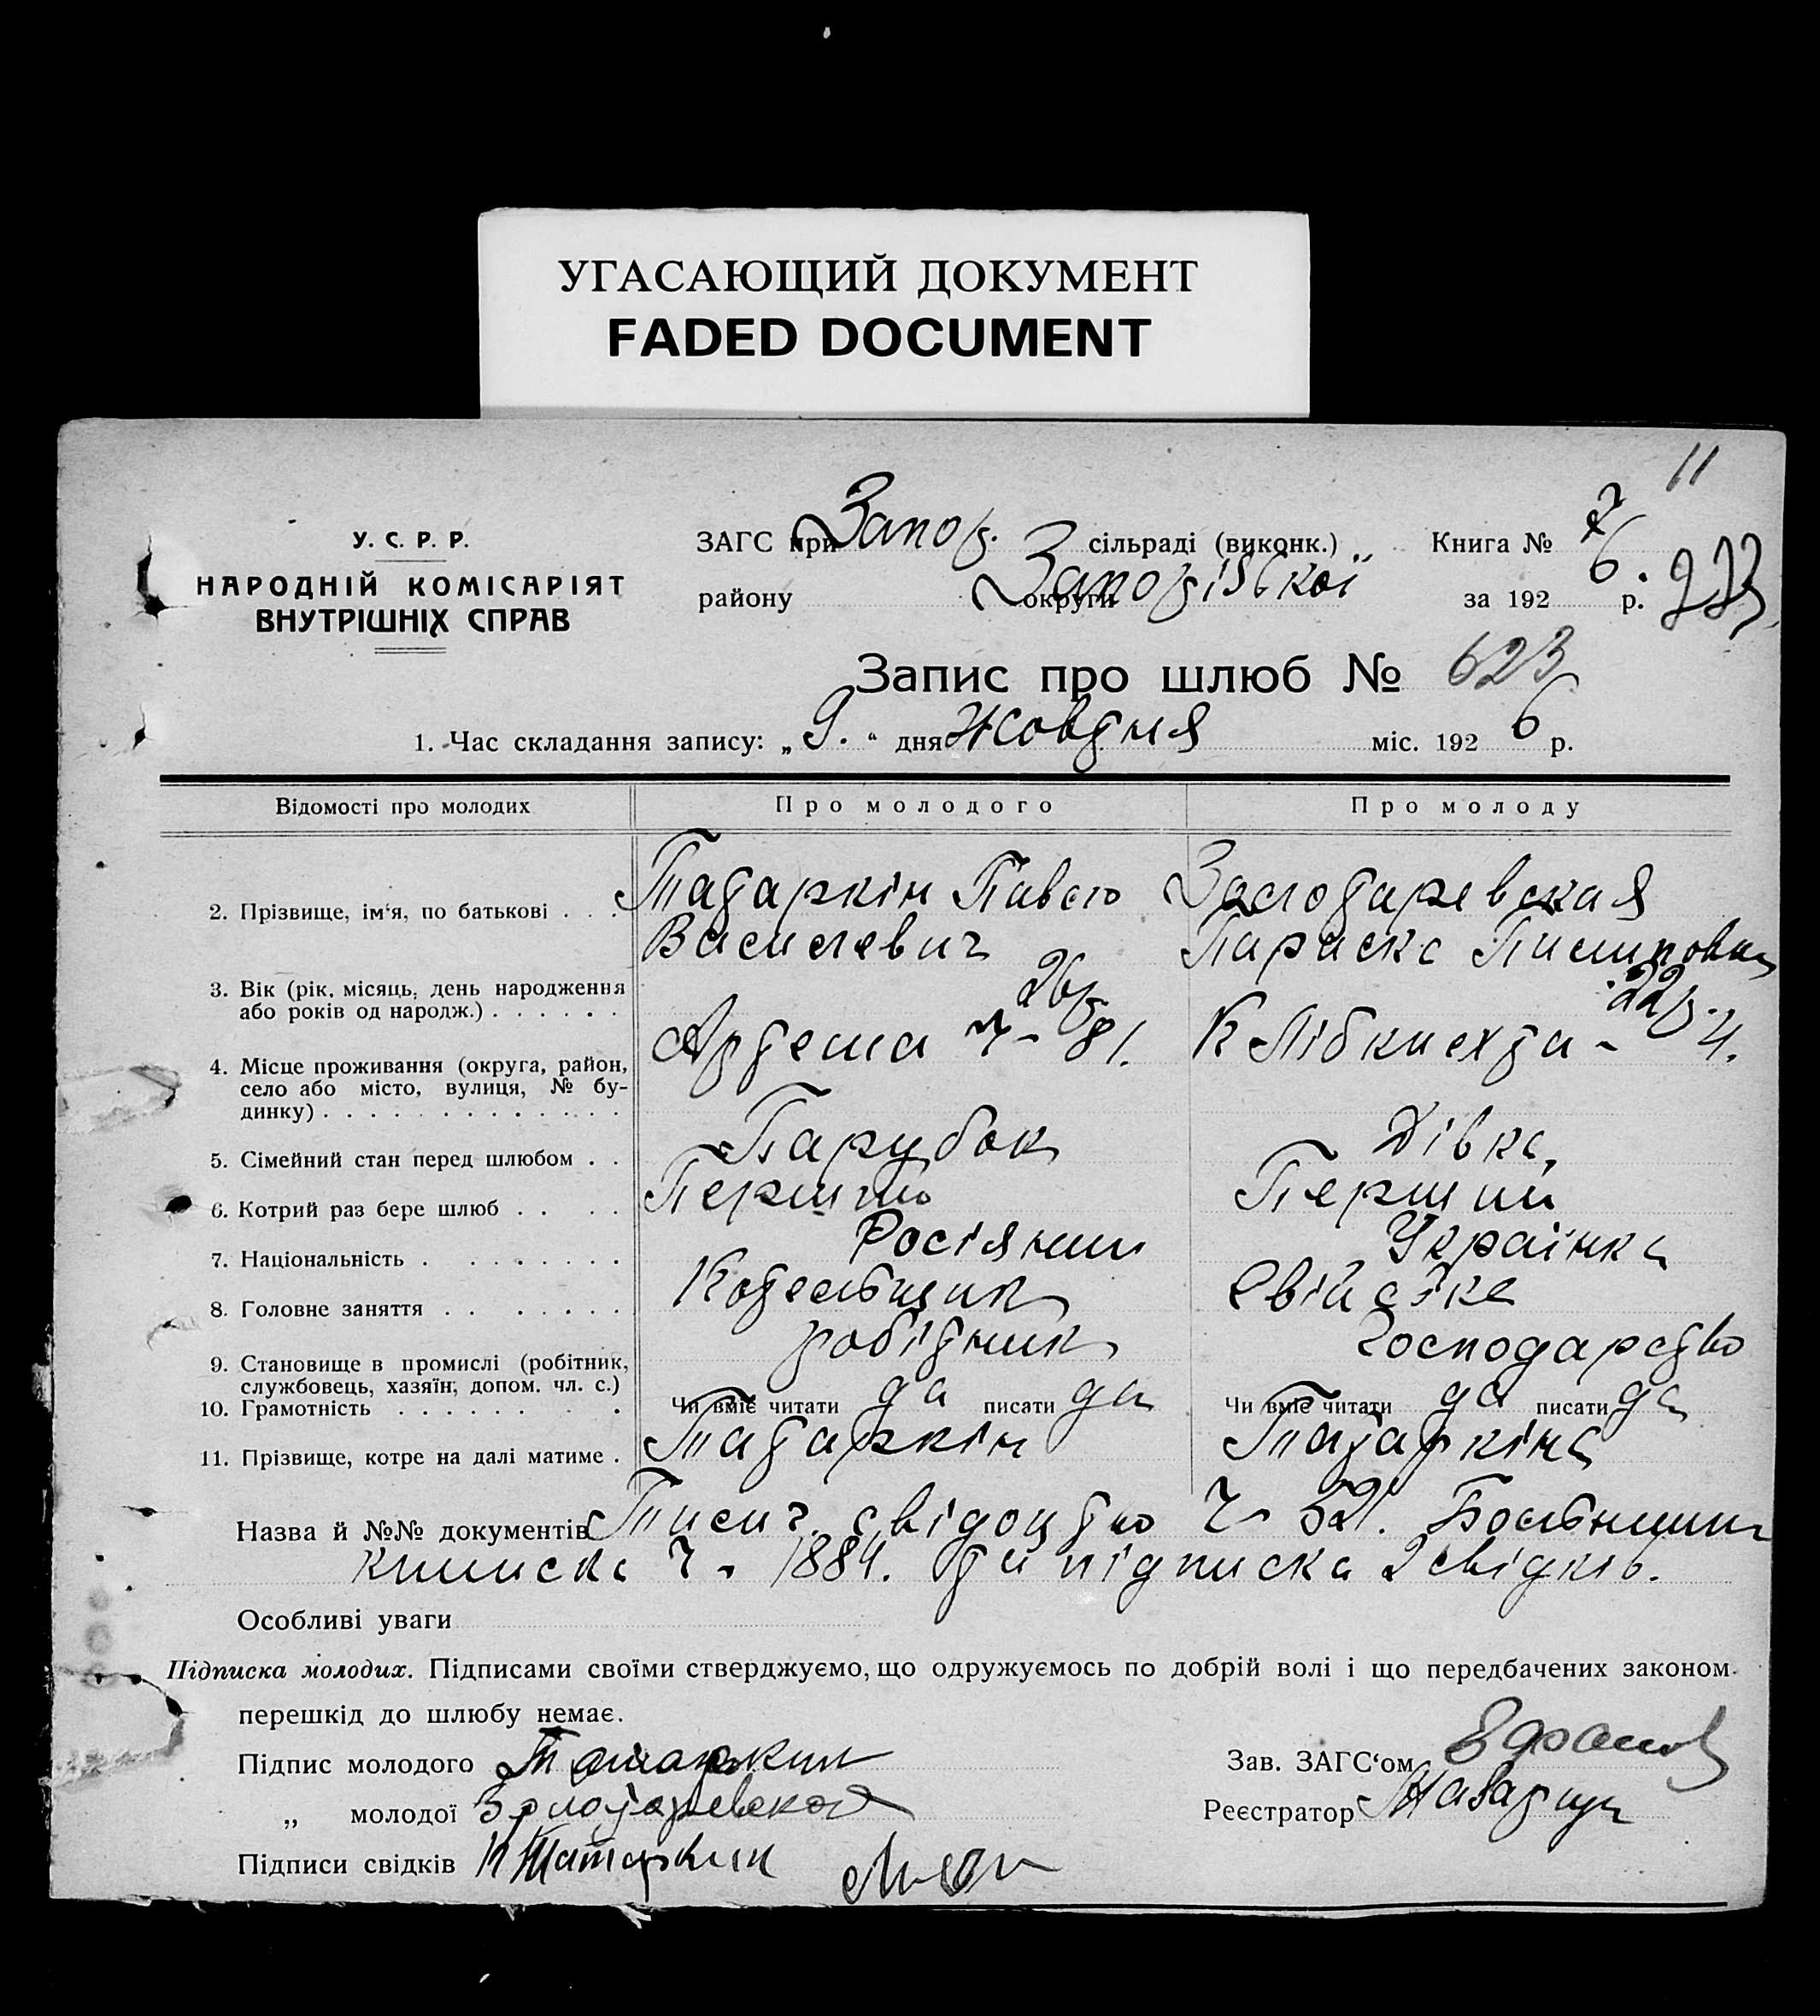 УГАСАЮЩИЙ ДОКУМЕНТ
FADED DOCUMENT
11
У. С. Р. Р.
НАРОДНІЙ КОМІСАРІЯТ
ВНУТРІШНІХ СПРАВ
ЗАГС при Запор. сільраді (виконк.) Книга № 7
району округи Запорізької за 192 6 р.
Запис про шлюб № 623
1. Час складання запису: „ 9. " дня Жовтня міс. 192 6 р.
Відомості про молодих Про молодого Про молоду
2. Прізвище, ім'я, по батькові . . . Татаркін Павло Золотаревская
Василевич Параска Пилиповна
3. Вік (рік, місяць, день народження 26 22
або років од народж.) . . . . . .
Артема ч- 81. К Лібкнехта - 4.
4. Місце проживання (округа, район,
село або місто, вулиця, № бу-
динку) . . . . . . . . . . . . . .
5. Сімейний стан перед шлюбом . . Парубок Дівка
6. Котрий раз бере шлюб . . . . Перший Перший
7. Національність . . . . . . . . Росіянин Українка
8. Головне заняття . . . . . . . Котельщик Свійське
робітник Господарство
9. Становище в промислі (робітник,
службовець, хазяїн, допом. чл. с.)
10. Грамотність . . . . . . . . Чи вміє читати да писати да Чи вміє читати да писати да
11. Прізвище, котре на далі матиме . Татаркін Татаркіна
Назва й №№ документів свідоцтво ч- 521.
книжка ч- 1884. та підписка 2 свідків.
Особливі уваги
Підписка молодих. Підписами своїми стверджуємо, що одружуємось по добрій волі і що передбачених законом
перешкід до шлюбу немає.
Підпис молодого Татаркин Зав. ЗАГС'ом
„ молодої Золотаревская Реєстратор
Підписи свідків Татаркин